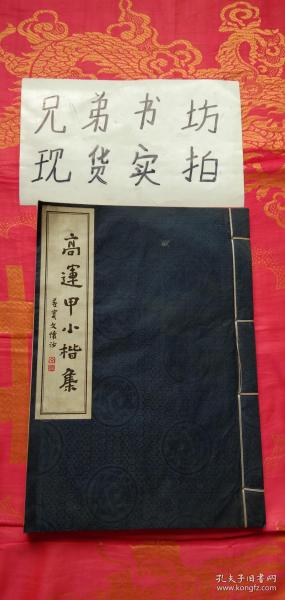 兄弟书坊
现货实拍
高運甲小楷集
文懷沙
孔夫子旧书网